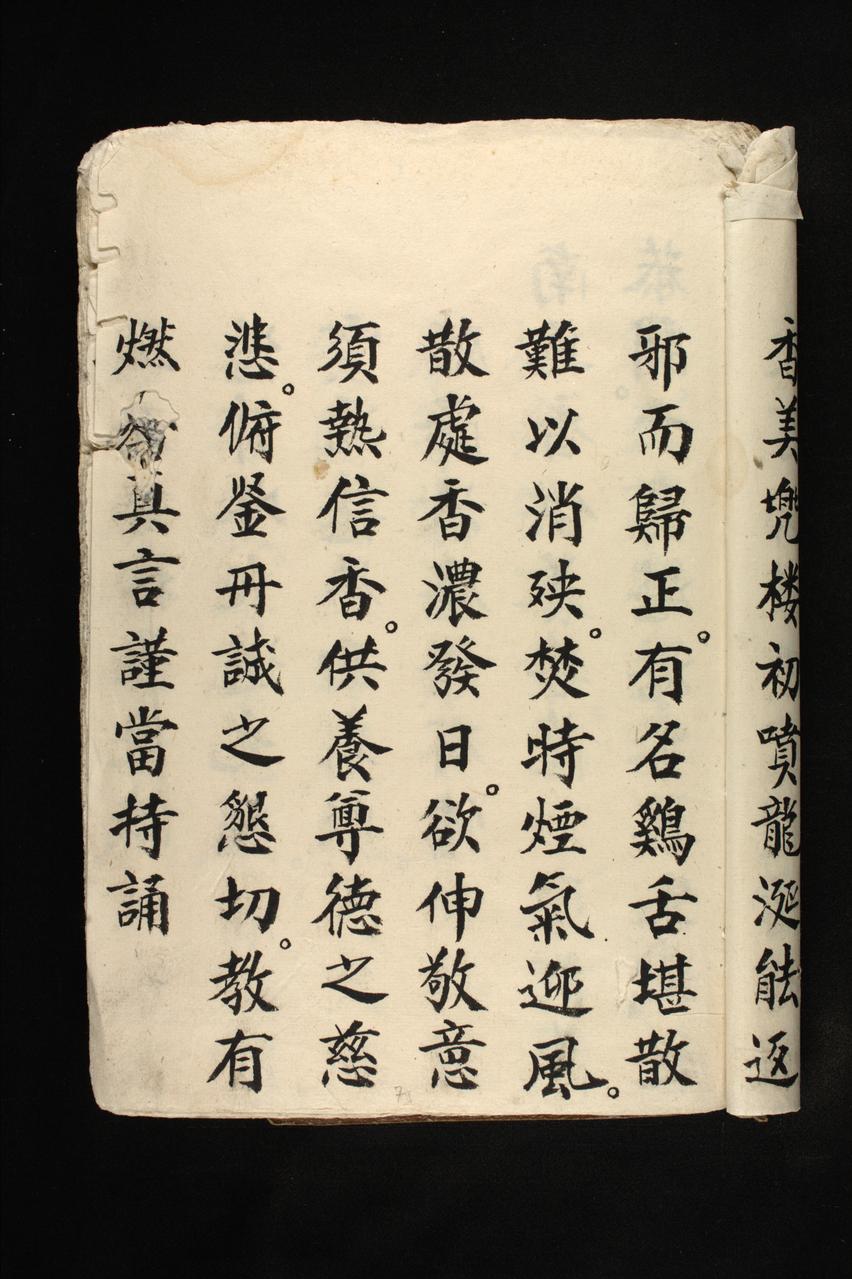 香美兠楼初噴龍涎能返
邪而歸正。有名鷄舌堪散
難以消殃。焚時煙氣迎風。
散處香濃發日。欲伸敬意
須熱信香。供養尊德之慈
悲。俯鉴丹誠之懇切。教有
燃香真言謹當持誦